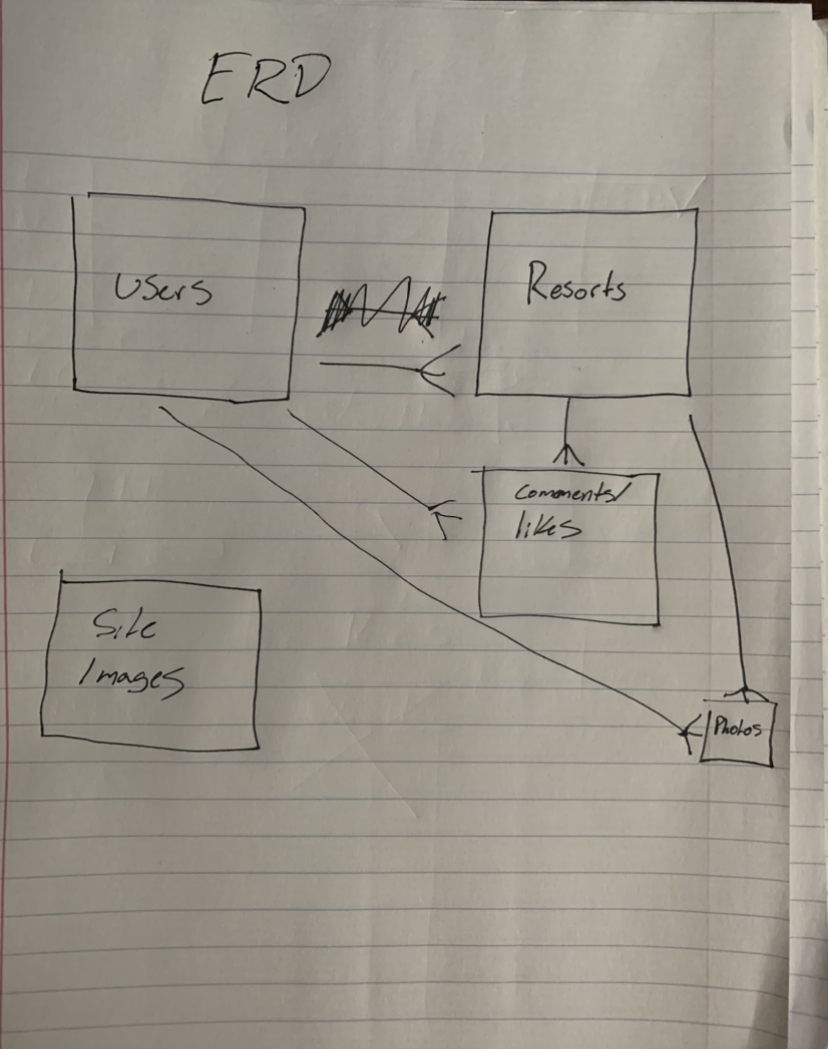 ERD
Users
Resorts
Comments/
likes
Site
Images
Photos